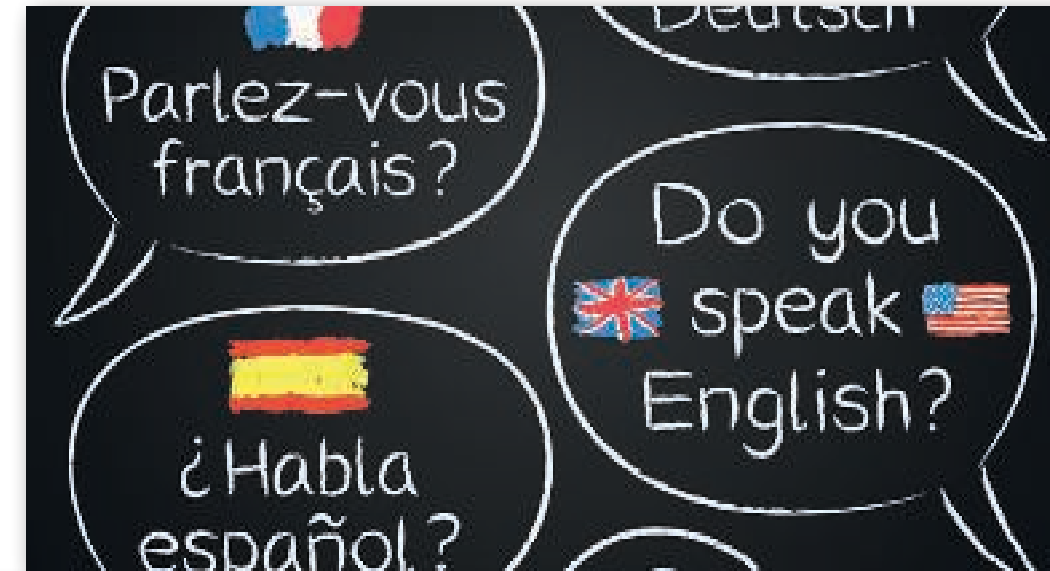 Parlez-vous
français?
Deutsch
Do you
speak
English?
¿Habla
español?